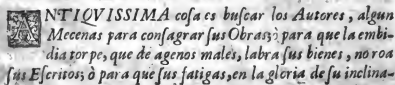 ANTIQVISSIMA coſa es buſcar los Autores, algun
Mecenas para conſagrar ſus Obras; ò para que la embi-
dia torpe, que de agenos males, labra ſus bienes, no roa
ſus Eſcritos; ò para que ſus fatigas, en la gloria de ſu inclina-